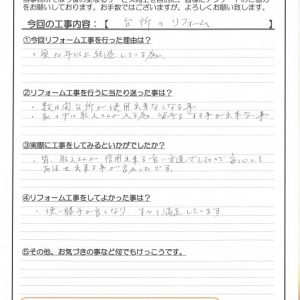 をお願いしております。お手数ではございますが、よろしくお願い致します。
今回の工事内容:【 台所のリフォーム
①今回リフォーム工事を行った理由は?
・築30年以上経過している為。
②リフォーム工事を行うに当たり迷った事は?
・数日間台所が使用出来なくなる事
・家の中に他人さんが入る為 留守にする事が出来ない事
③実際に工事をしてみるといかがでしたか?
・皆、職人さんが信用出来る方達でしたので安心して
お任せ出来る事が良かったです。
④リフォーム工事をしてよかった事は?
・使い勝手が良くなり、すべて満足しています
⑤その他、お気づきの事など何でもけっこうです。